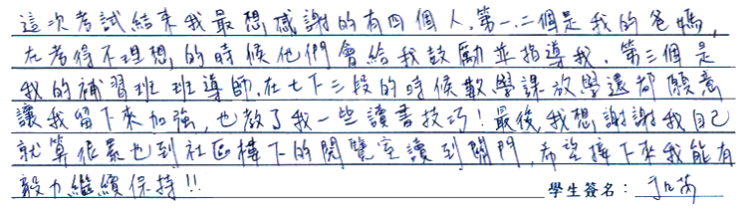 這次考試結束我最想感謝的有四個人.第一.二個是我的爸媽,
在考得不理想的時候他們會給我鼓勵並指導我.第三個是
我的補習班班導師.在七下三段的時候數學課放學還都願意
讓我留下來加強,也教了我一些讀書技巧!最後,我想謝謝我自己
就算很累也到社區樓下的閱覽室讀到關門,希望接下來我能有
毅力繼續保持!!
學生簽名: